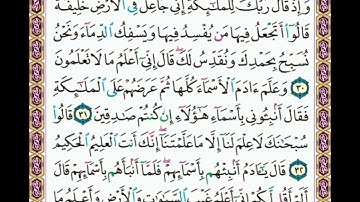 وَإِذْ قَالَ رَبُّكَ لِلْمَلَٰٓئِكَةِ إِنِّي جَاعِلٌ فِي ٱلْأَرْضِ خَلِيفَةً
قَالُوٓا۟ أَتَجْعَلُ فِيهَا مَن يُفْسِدُ فِيهَا وَيَسْفِكُ ٱلدِّمَآءَ وَنَحْنُ
نُسَبِّحُ بِحَمْدِكَ وَنُقَدِّسُ لَكَ ۖ قَالَ إِنِّيٓ أَعْلَمُ مَا لَا تَعْلَمُونَ
٣٠ وَعَلَّمَ ءَادَمَ ٱلْأَسْمَآءَ كُلَّهَا ثُمَّ عَرَضَهُمْ عَلَى ٱلْمَلَٰٓئِكَةِ
فَقَالَ أَنۢبِـُٔونِي بِأَسْمَآءِ هَٰٓؤُلَآءِ إِن كُنتُمْ صَٰدِقِينَ ٣١ قَالُوا۟
سُبْحَٰنَكَ لَا عِلْمَ لَنَآ إِلَّا مَا عَلَّمْتَنَآ ۖ إِنَّكَ أَنتَ ٱلْعَلِيمُ ٱلْحَكِيمُ
٣٢ قَالَ يَٰٓـَٔادَمُ أَنۢبِئْهُم بِأَسْمَآئِهِمْ ۖ فَلَمَّآ أَنۢبَأَهُم بِأَسْمَآئِهِمْ قَالَ
أَلَمْ أَقُل لَّكُمْ إِنِّيٓ أَعْلَمُ غَيْبَ ٱلسَّمَٰوَٰتِ وَٱلْأَرْضِ وَأَعْلَمُ مَا